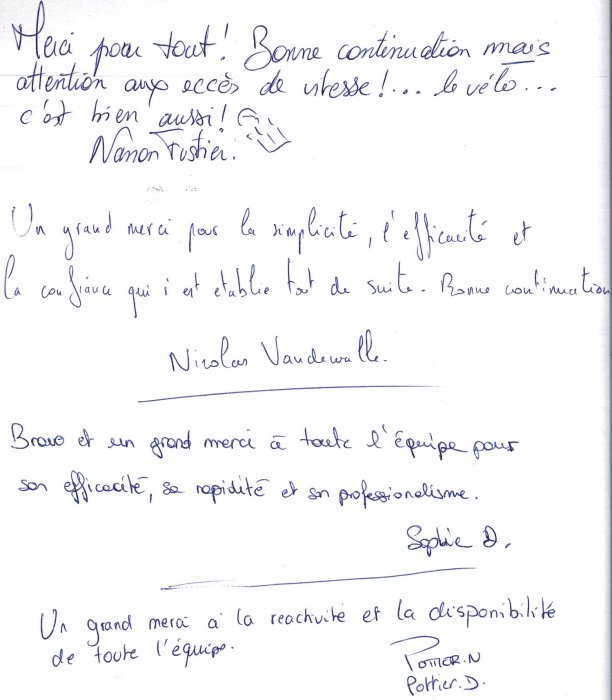 Merci pour tout! Bonne continuation mais
attention aux eccès de vitesse!... le vélo...
c'est bien aussi!
Nanon Fustier.
Un grand merci pour la simplicité, l'efficacité et
la confiance qui s'est établie tout de suite. Bonne continuation
Nicolas Vandewalle.
Bravo et un grand merci à toute l'équipe pour
son efficacité, sa rapidité et son professionalisme.
Sophie D.
Un grand merci à la reactivité et la disponibilité
de toute l'équipe.
POTTIER.N
Pottier.D.